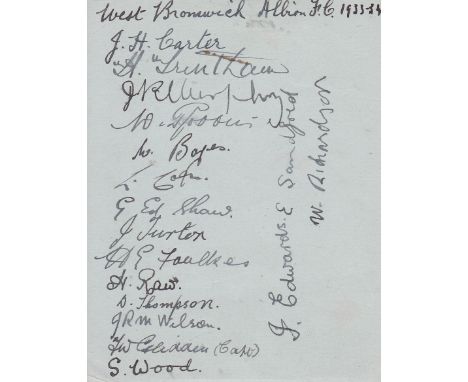 West Bromwich Albion F.C. 1933-34
J. H. Carter
"A" Trentham
J R Murphy
W.
W. Boyes.
G Ed Shaw.
J Turton
H E Foulkes
H. Raw.
D. Thompson.
J R M Wilson.
T W Glidden (Capt)
S. Wood.
J. Edwards.
E Sandford
W. Richardson